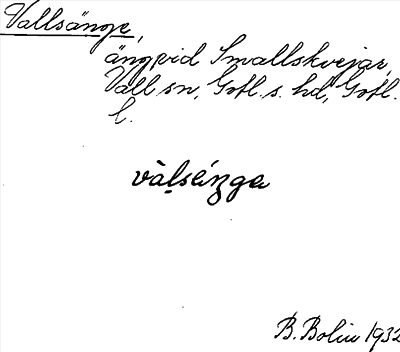 Vallsänge,
äng vid Smallskvejar,
Vall sn, Gotl. s. hd, Gotl.
l.
vàl̥séŋga
B. Bolin 1932